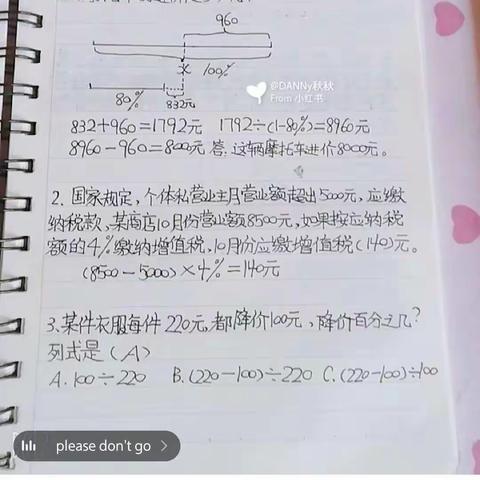 960
x 100%
80% 832元
@DANNy秋秋
From 小红书
832+960=1792元 1792÷(1-80%)=8960元
8960-960=8000元 答:这辆摩托车进价8000元。
2. 国家规定,个体私营业主月营业额超出5000元,应缴
纳税款,某商店10月份营业额8500元,如果按应纳税
额的4%缴纳增值税,10月份应缴增值税(140)元。
(8500-5000)×4%=140元
3.某件衣服每件220元,都降价100元,降价百分之几?
列式是(A)
A.100÷220 B.(220-100)÷220 C.(220-100)÷100
please don't go >